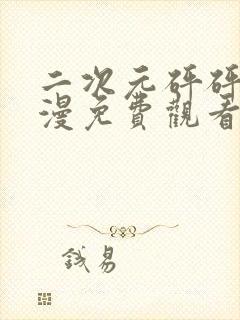 二次元砰砰
漫免費觀看
錢易